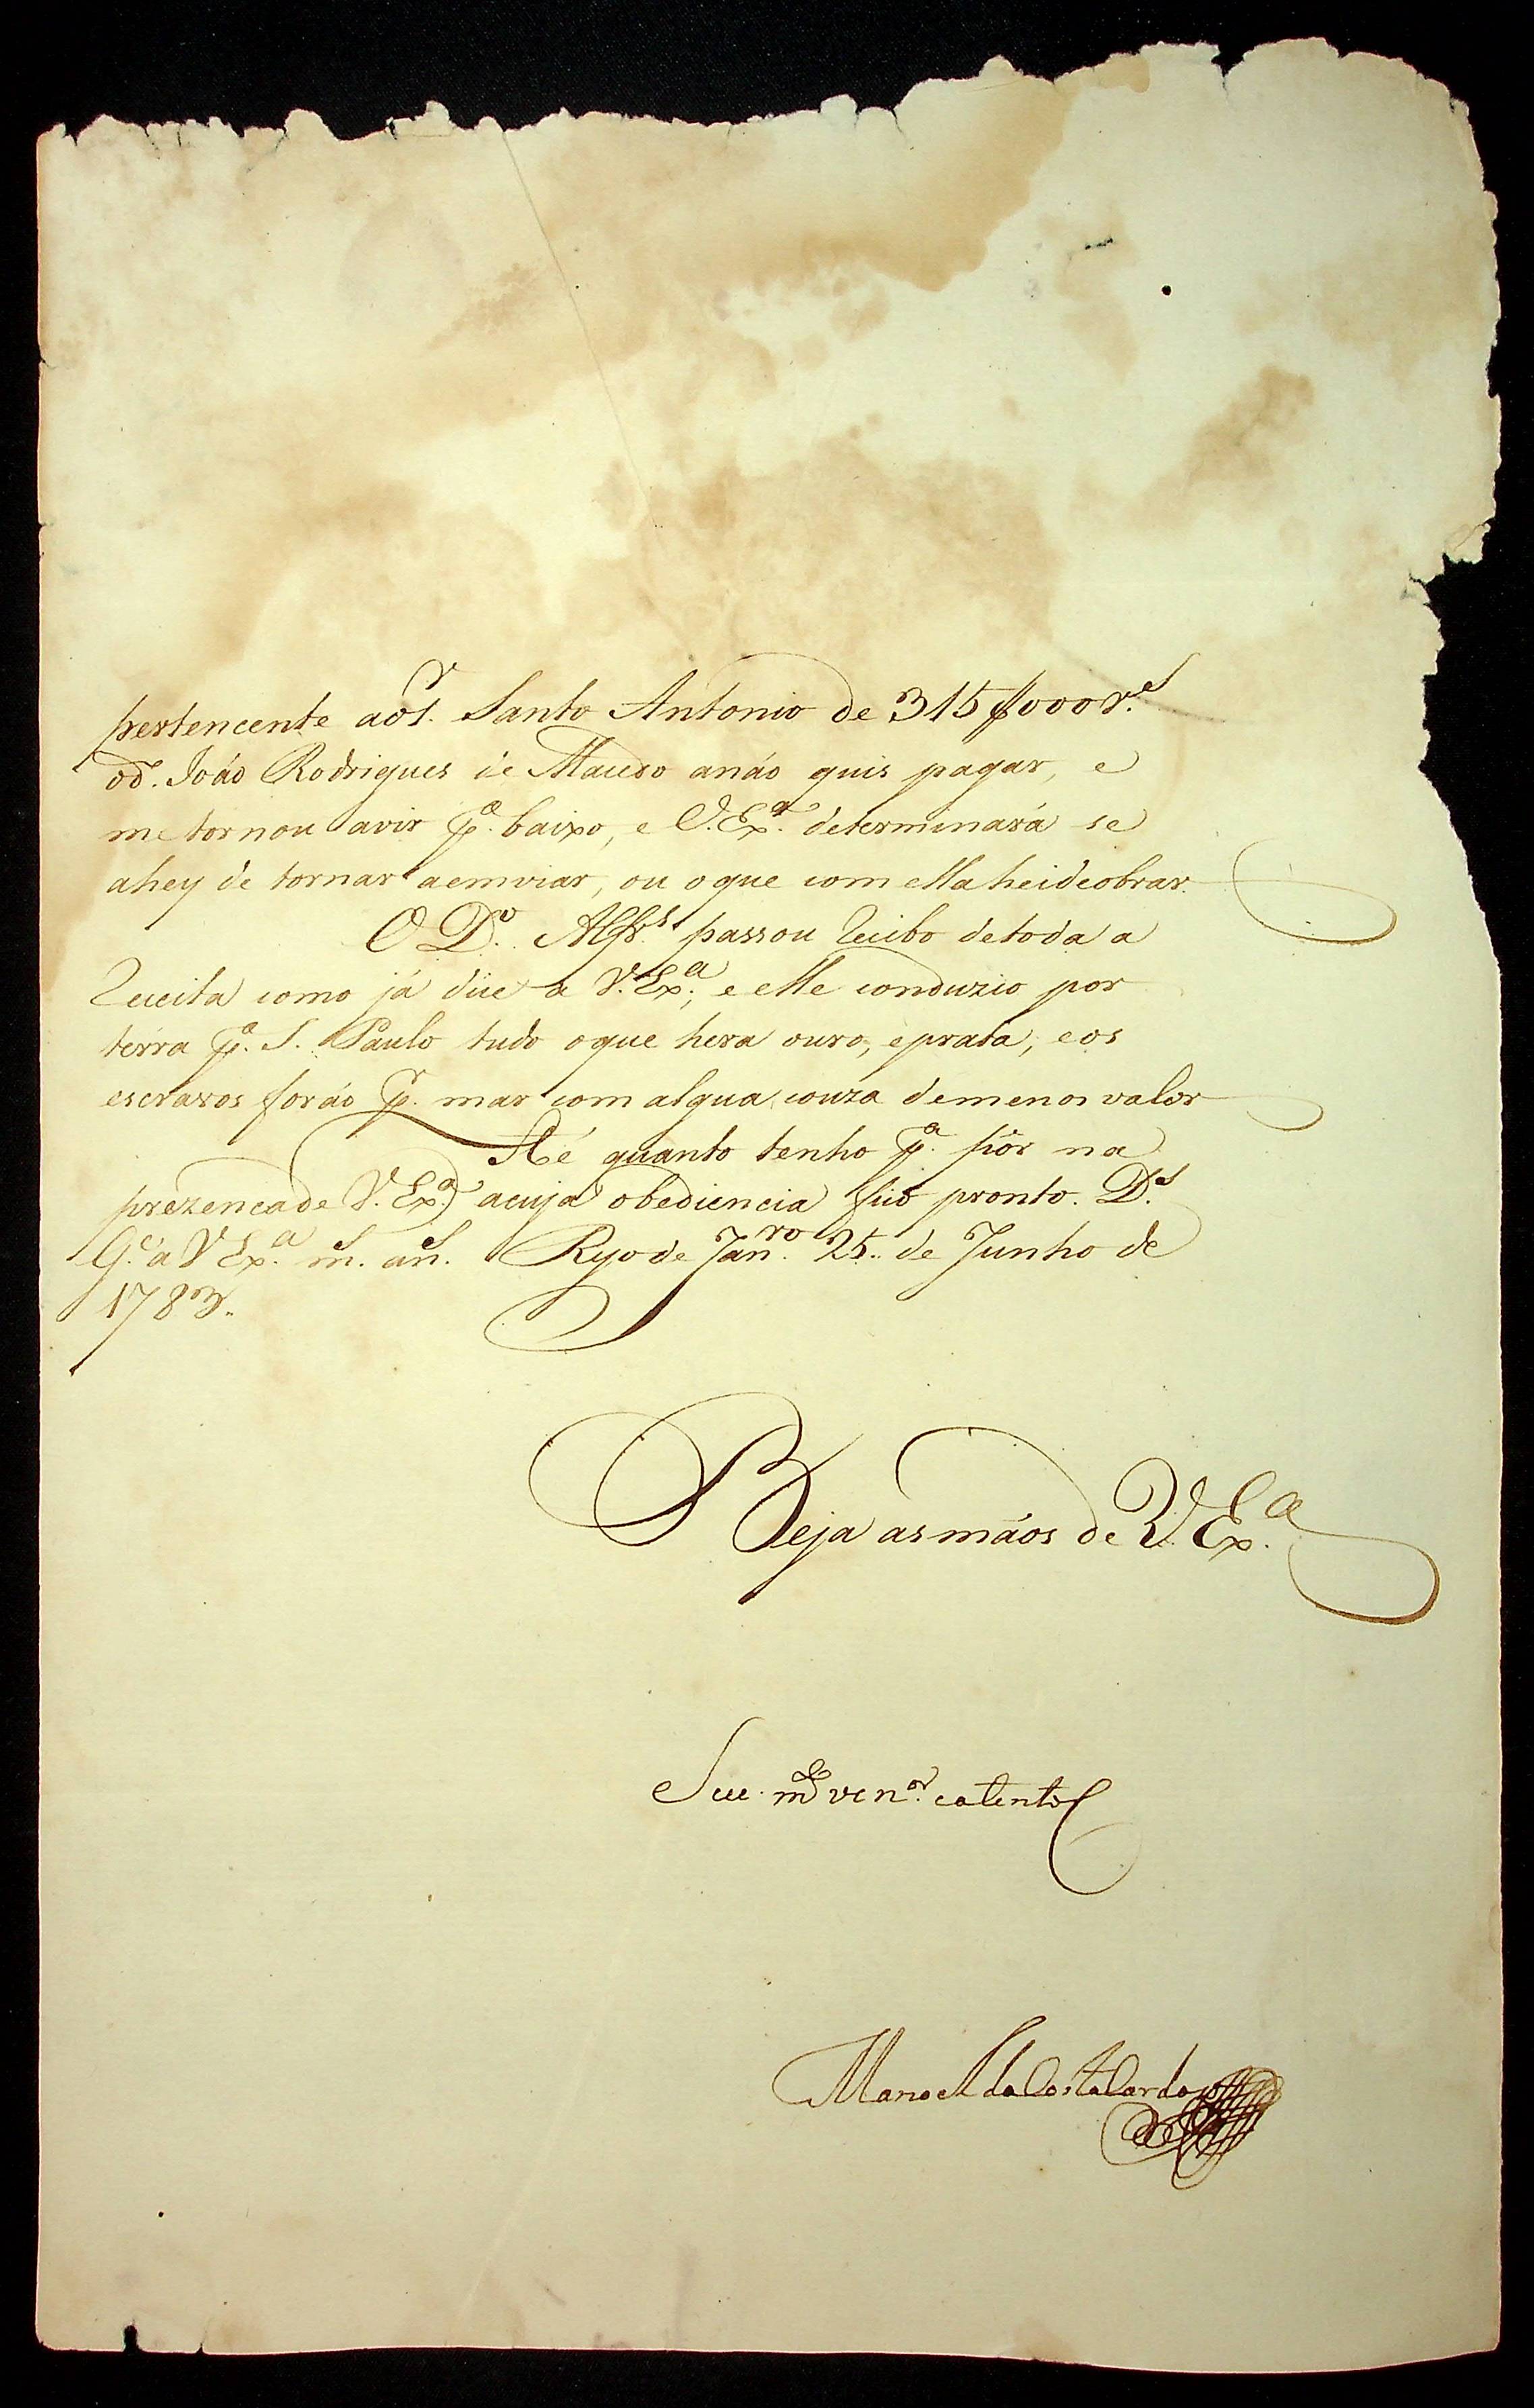 pertencente ao S.r Santo Antonio de 315$000 r.s
o d.o João Rodrigues de Macedo a não quis pagar, e
me tornou avir p.a baixo, e V. Ex.a determinará se
a hey de tornar a emviar, ou o que com ella hei de obrar.
O D.o Alfr.s passou recibo de toda a
receita como já diçe a V. Ex.a, e elle conduzio por
terra p.a S. Paulo tudo o que hera ouro, e prata, e os
escravos forão p.r mar com algua couza de menos valor
Hé quanto tenho p.a pôr na
prezenca de V. Ex.a a cuja obediencia fico pronto. D.s
G.e a V Ex.a m.s an.s Ryo de Jan.ro 25.. de Junho de
1783.
Beja as mãos de V. Ex.a
Seu m.to ven.or e atento C
Manoel da Costa Cardozo